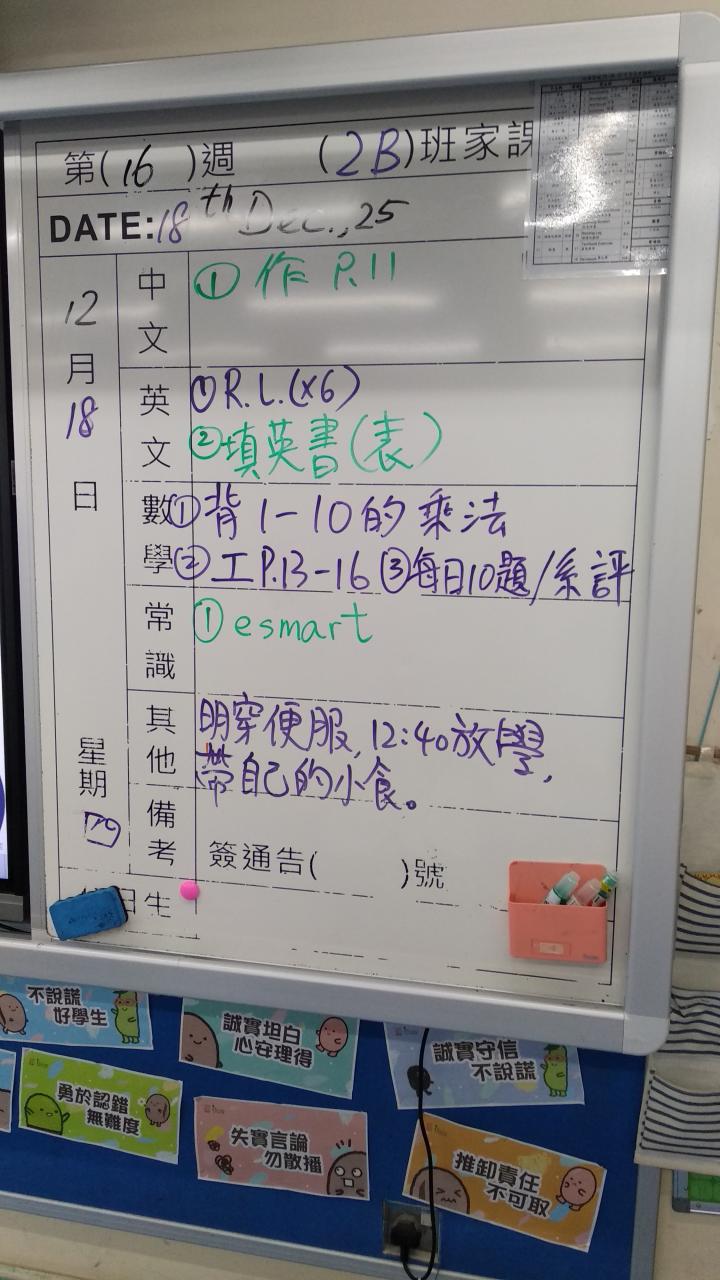 第(16)週 (2B)班家課
DATE:18th Dec.,25
12月18日
星期四
中文
①作 P.11
英文
①R.L.(x6)
②填英書(表)
數學
①背1-10的乘法
②工P.13-16 ③每日10題/系評
常識
①esmart
其他
明穿便服,12:40放學,
帶自己的小食。
備考
簽通告( )號
日生
不說謊
好學生
誠實坦白
心安理得
誠實守信
不說謊
勇於認錯
無難度
失實言論
勿散播
推卸責任
不可取